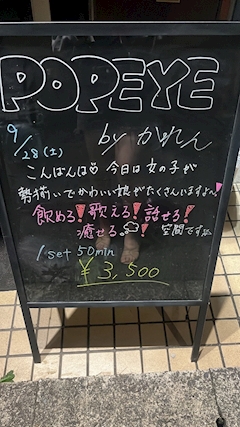 POPEYE
9/28(土) by かれん
こんばんは♡ 今日は女の子が
勢揃いでかわいい娘がたくさんいますよ〜!
飲める!歌える!話せる!
癒せる!空間です
1 set 50min
¥3,500